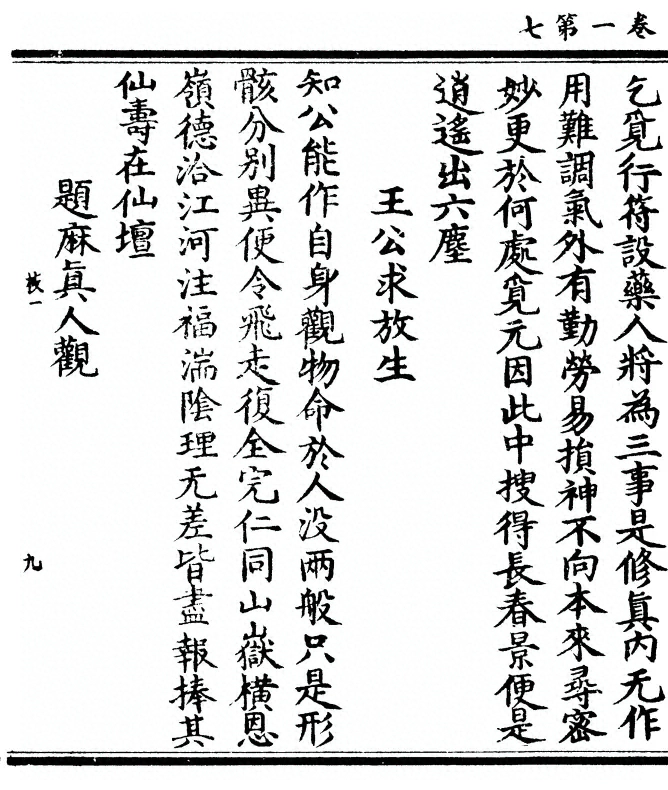 卷一第七
乞覓行符設藥人將為三事是修眞内无作
用難調氣外有勤勞易損神不向本來尋密
妙更於何處覓元因此中搜得長春景便是
逍遙出六塵
王公求放生
知公能作自身觀物命於人没兩般只是形
骸分别異便令飛走復全完仁同山嶽橫恩
嶺德洽江河注福湍陰理无差皆盡報捧其
仙壽在仙壇
題麻眞人觀
九